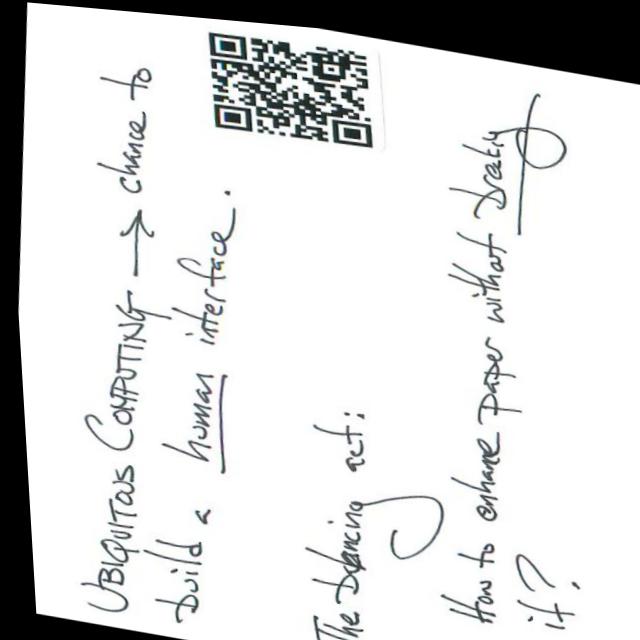 UBIQUITOUS COMPUTING → chance to
build a human interface.
The balancing act:
How to enhance paper without breaking
it?